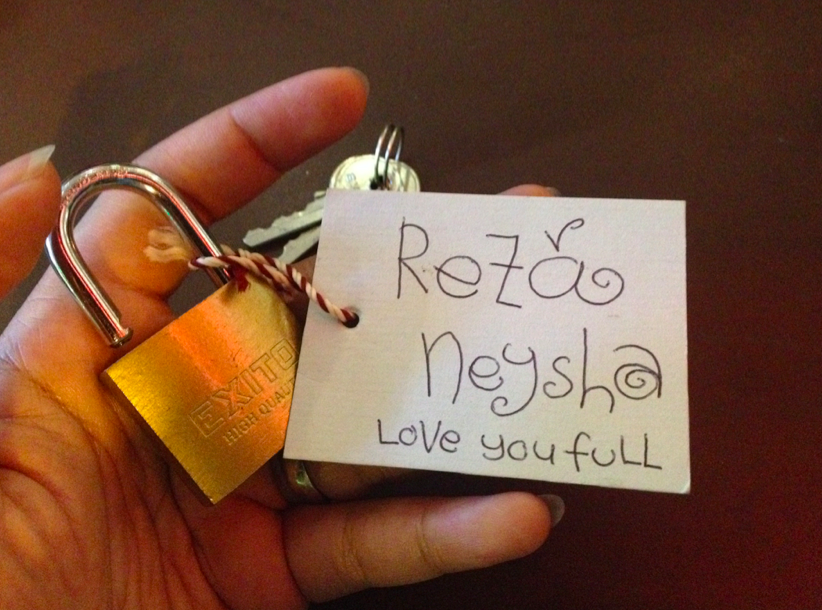 EXITO
HIGH QUALI
Reza
neysha
Love you full